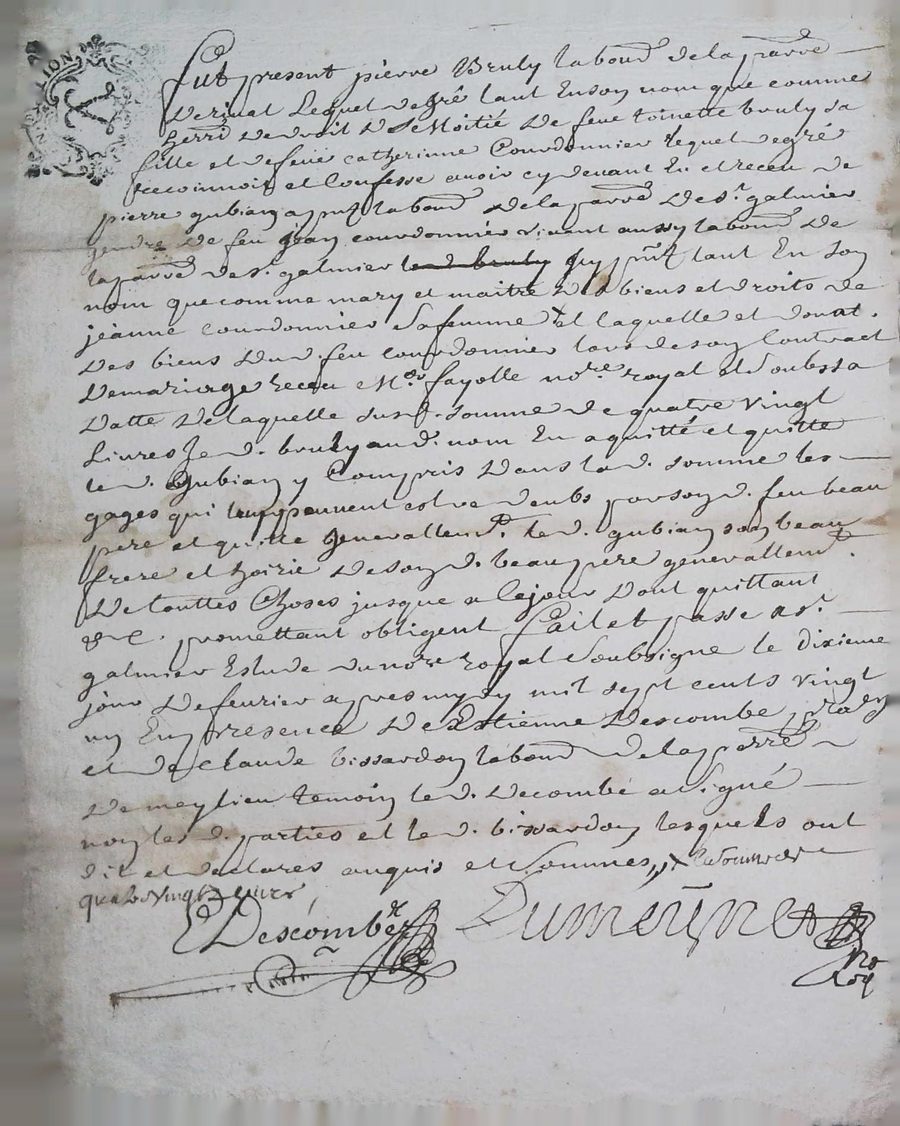 LION
Fut present pierre Bruly labourd de la parre
Lequel de gré tant En son nom que comme
De droit De Moitié De feue toinette bruly sa
fille et de feüe catherinne Courdonnier lequel de gré
reconnoit et Confesse avoir cy devant Eu et receu de
pierre gubian a pnt labourd de la parre De st galmier
gendre De feu jean courdonnier vivant aussy labourd De
la parre de st galmier led bruly cy pnt tant En son
nom que comme mary et maitre des biens et droits de
jeanne Courdonnier sa femme X et laquelle et donat.
Des biens dud. feu courdonnier lors de son Contract
De mariage receu Me fayolle nore royal et Soubs sa
datte De laquelle susd. somme de quatre vingt
Livres Led. bruly aud. nom En a quitté et quitte
led. Gubian y Compris Dans lad. somme les
gages qui luy peuvent estre deubs par sond. feu beau
pere et quitte Generallemt. led. gubian son beau
frere et hoirie De sond. beau pere generallemt.
De touttes Choses jusque a ce jour Dont quittant
&c. promettant obligent fait et passe a st.
galmier Estude du nore royal Soubsigne le dixieme
jour De feurier apres midy mil sept cents vingt
un En presence De Estienne Descombe
et de Claude bissardon labourd de la parre
De meylieu temoin led. Decombe a signé
non les d. parties et led. bissardon lesquels ont
dit et declares enquis et sommes, X la somme de
quatre vingt Livres
Descombe